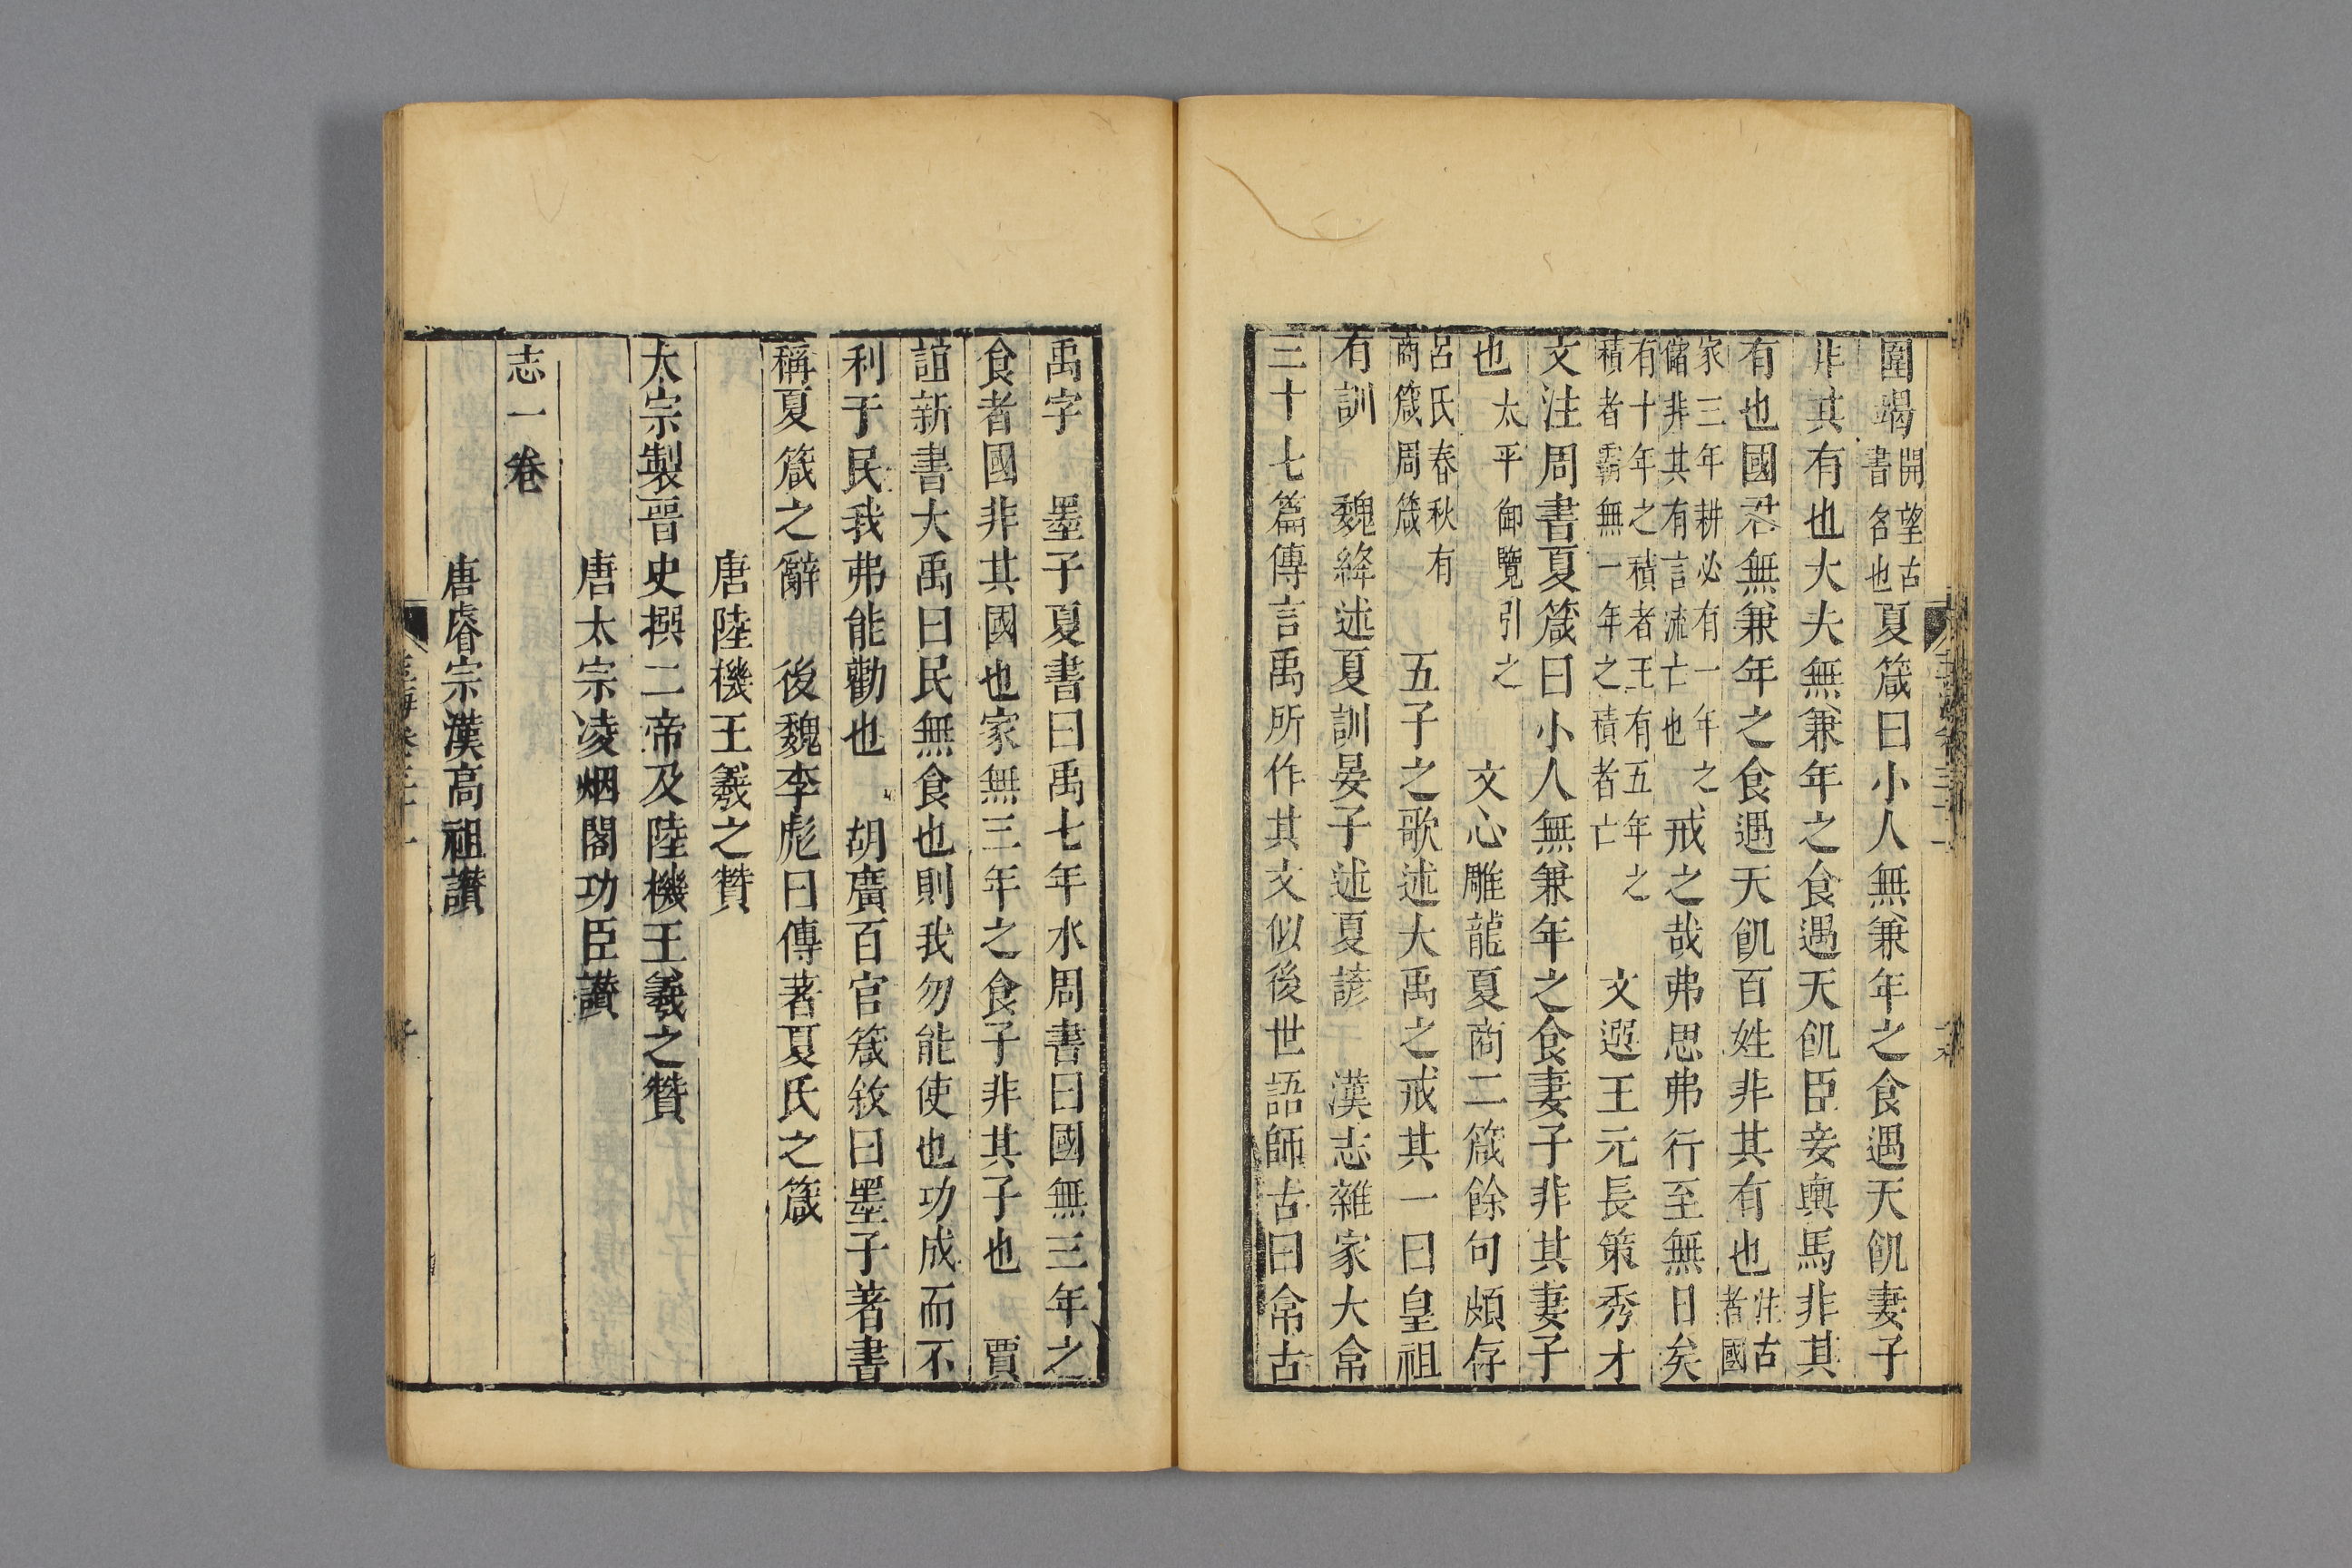 圍竭開望古書名也夏箴曰小人無兼年之食遇天飢妻子
非其有也大夫無兼年之食遇天飢臣妾輿馬非其
有也國君無兼年之食遇天飢百姓非其有也注古者國
家三年耕必有一年之儲非其有言流亡也戒之哉弗思弗行至無日矣
有十年之積者王有五年之積者霸無一年之積者亡 文選王元長策秀才
文注周書夏箴曰小人無兼年之食妻子非其妻子
也太平御覽引之 文心雕龍夏商二箴餘句頗存
呂氏春秋有商箴周箴 五子之歌述大禹之戒其一曰皇祖
有訓 魏絳述夏訓晏子述夏諺 漢志雜家大帠
三十七篇傳言禹所作其文似後世語師古曰帠古
禹字 墨子夏書曰禹七年水周書曰國無三年之
食者國非其國也家無三年之食子非其子也 賈
誼新書大禹曰民無食也則我勿能使也功成而不
利于民我弗能勸也 胡廣百官箴敘曰墨子著書
稱夏箴之辭 後魏李彪曰傳著夏氏之箴
唐陸機王羲之贊
太宗製晉史撰二帝及陸機王羲之贊
唐太宗凌烟閣功臣讃
志一卷
唐睿宗漢高祖讃